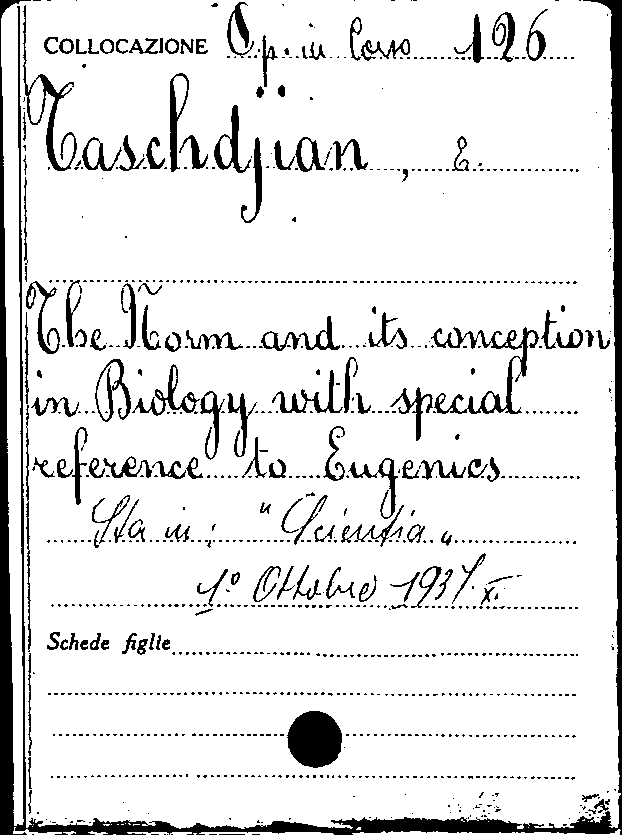 COLLOCAZIONE Op. in Corso 126
Taschdjian, E.
The Norm and its conception
in Biology with special
reference to Eugenics
Sta in: "Scientia"
1º Ottobre 1937. XI.
Schede figlie